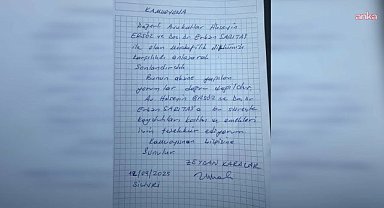 anka
KAMUOYUNA
Değerli Avukatlar Hüseyin
ERSÖZ ve Doç. Dr. Erkan SARITAŞ
ile olan müdafilik ilişkimiz
karşılıklı anlaşarak
Sonlandırıldı.
Bunun aksine yapılan
yorumlar doğru değildir.
Av. Hüseyin ERSÖZ ve Doç. Dr.
Erkan SARITAŞ'a bu süreçte
katkı ve emekleri
için teşekkür ediyorum
Kamuoyunun bilgisine
Sunulur.
ZEYDAN KARALAR
12/09/2025
SİLİVRİ